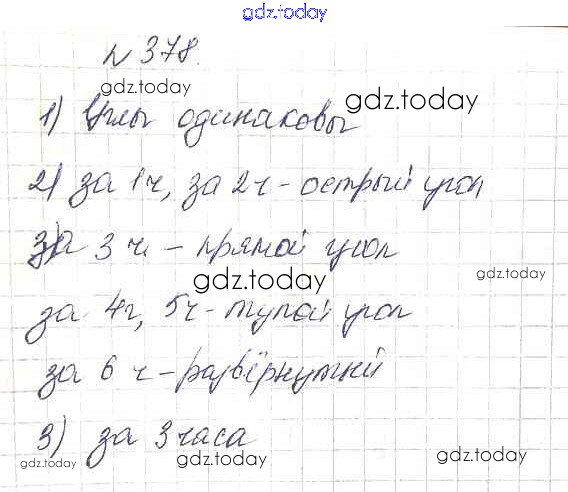 gdz.today
№ 378.
gdz.today
gdz.today
1) Углы одинаковы
2) за 1ч, за 2ч - острый угол
за 3 ч - прямой угол
gdz.today
gdz.today
за 4ч, 5ч - тупой угол
за 6 ч - развёрнутый
3) за 3 часа
gdz.today
gdz.today
gdz.today